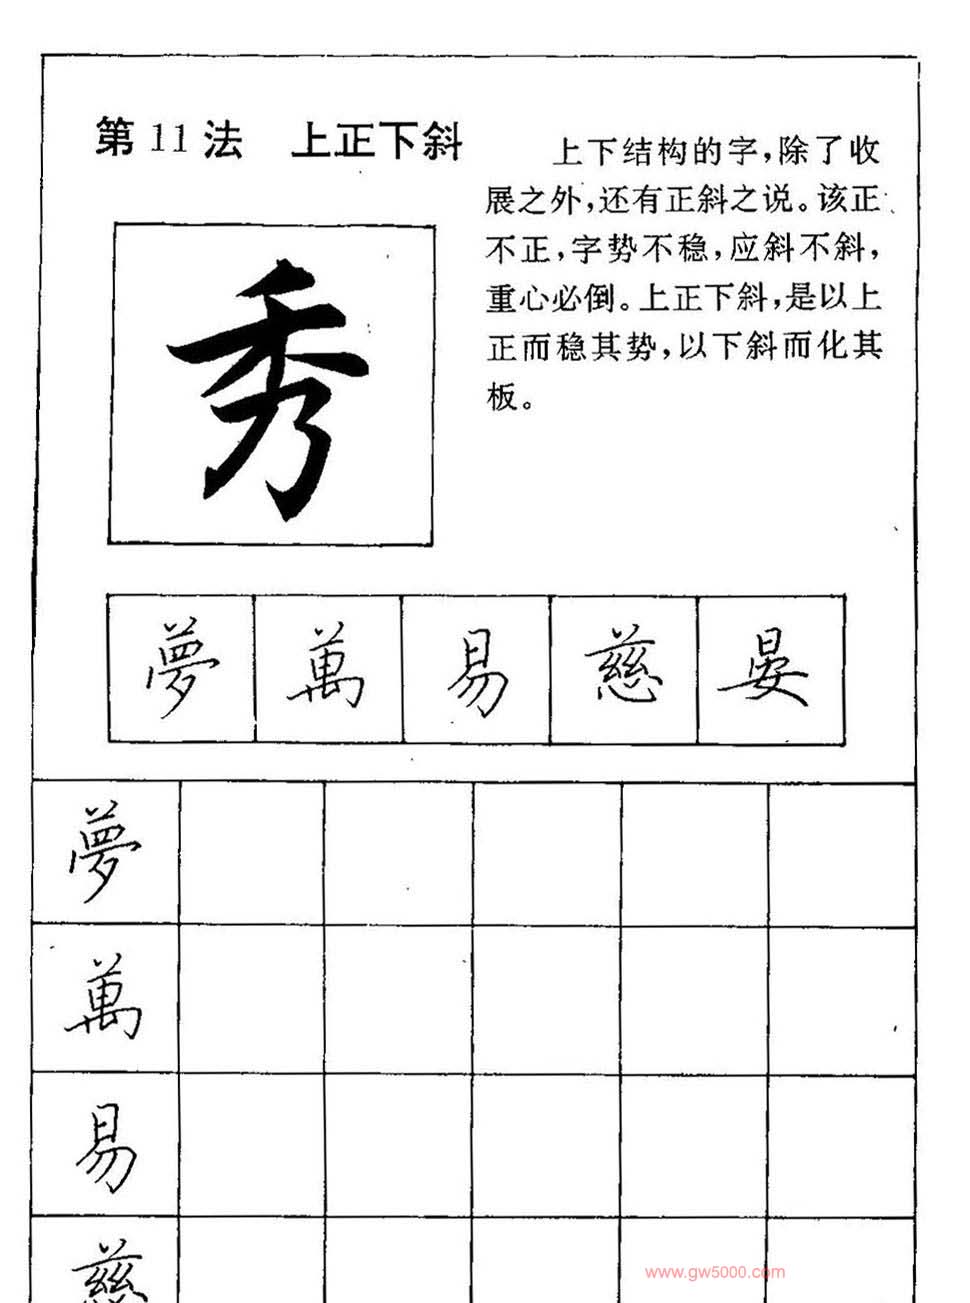 第11法 上正下斜
上下结构的字，除了收
展之外，还有正斜之说。该正
不正，字势不稳，应斜不斜，
重心必倒。上正下斜，是以上
正而稳其势，以下斜而化其
板。
秀
夢 萬 易 慈 晏
夢
萬
易
慈
www.gw5000.com